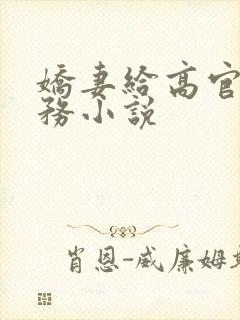 嬌妻給高官
務小說
肖恩-威廉姆